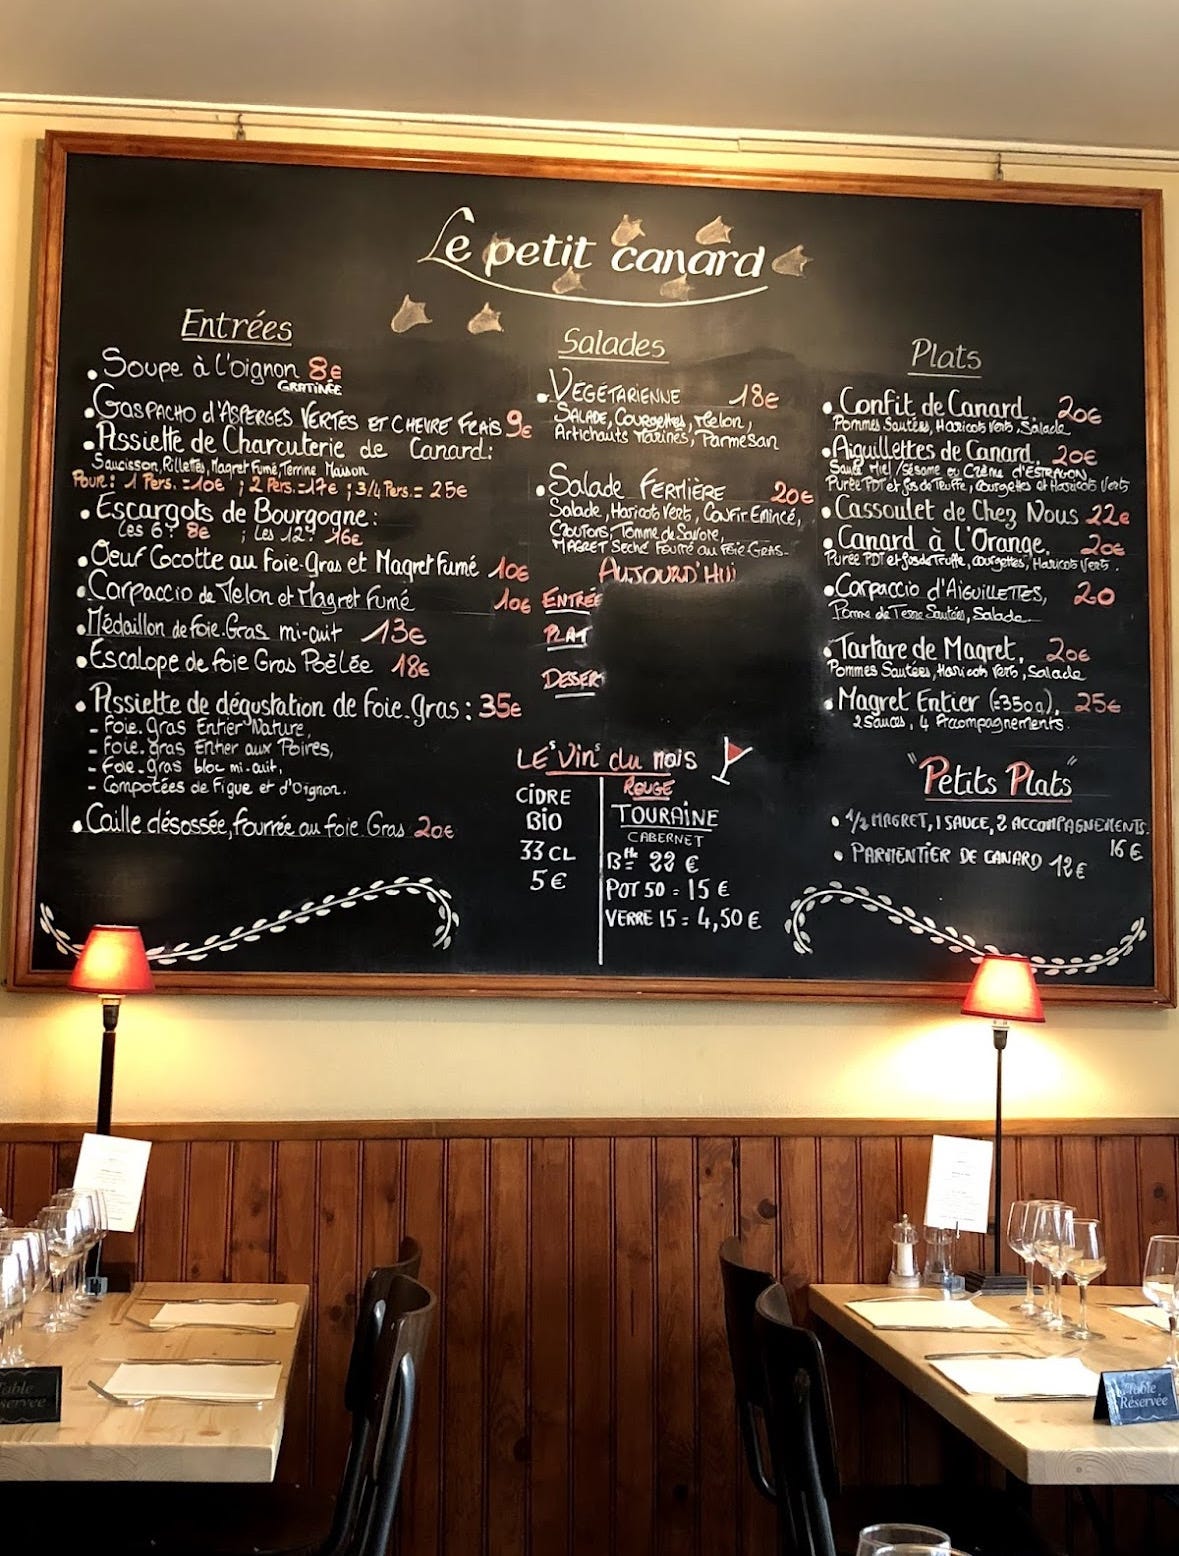 Le petit canard
Entrées
• Soupe à l'oignon 8€
GRATINÉE
• GASPACHO d'ASPERGES VERTES ET CHEVRE FRAIS 9€
• Assiette de Charcuterie de Canard:
Saucisson, Rillettes, Magret Fumé, Terrine Maison
Pour: 1 Pers. = 10€ ; 2 Pers. = 17€ ; 3/4 Pers. = 25€
• Escargots de Bourgogne:
Les 6: 8€ ; Les 12: 16€
• Oeuf Cocotte au Foie-Gras et Magret Fumé 10€
• Carpaccio de Melon et Magret Fumé 10€
• Médaillon de Foie.Gras mi-cuit 13€
• Escalope de Foie Gras Poêlée 18€
• Assiette de dégustation de Foie-Gras: 35€
- Foie.gras Entier Nature,
- Foie.gras Entier aux Poires,
- Foie.gras bloc mi-cuit,
- Compotées de Figue et d'Oignon.
• Caille désossée, fourrée au foie Gras 20€
Salades
• VEGÉTARIENNE 18€
SALADE, Courgettes, Melon,
Artichauts Marinés, Parmesan
• Salade FERMIÈRE 20€
Salade, Haricots Verts, Confit Emincé,
Croutons, Tomme de Savoie,
MAGRET Seché Fourré au Foie-GRAS-
AUJOURD'HUI
ENTRÉE
PLAT
DESSERT
LE "Vin" du mois
CIDRE
BIO
33 CL
5€
ROUGE
TOURAINE
CABERNET
Blle 22 €
POT 50 = 15 €
VERRE 15 = 4,50 €
Plats
• Confit de Canard. 20€
Pommes Sautées, Haricots Verts, Salade
• Aiguillettes de Canard. 20€
Sauce Miel/Sésame ou Crème d'ESTRAGON
Purée PDT et jus de Truffe, Courgettes et Haricots Verts
• Cassoulet de Chez Nous 22€
• Canard à l'Orange. 20€
Purée PDT et jus de Truffe, Courgettes, Haricots Verts.
• Carpaccio d'AIGUILLETTES, 20
Pomme de Terre Sautées, Salade
• Tartare de Magret. 20€
Pommes Sautées, Haricots Verts, Salade
• Magret Entier (=350g). 25€
2 Sauces, 4 Accompagnements.
"Petits Plats"
• 1/2 MAGRET, 1 SAUCE, 2 ACCOMPAGNEMENTS.
16 €
• PARMENTIER DE CANARD 12€
Table
Réservée
Table
Réservée